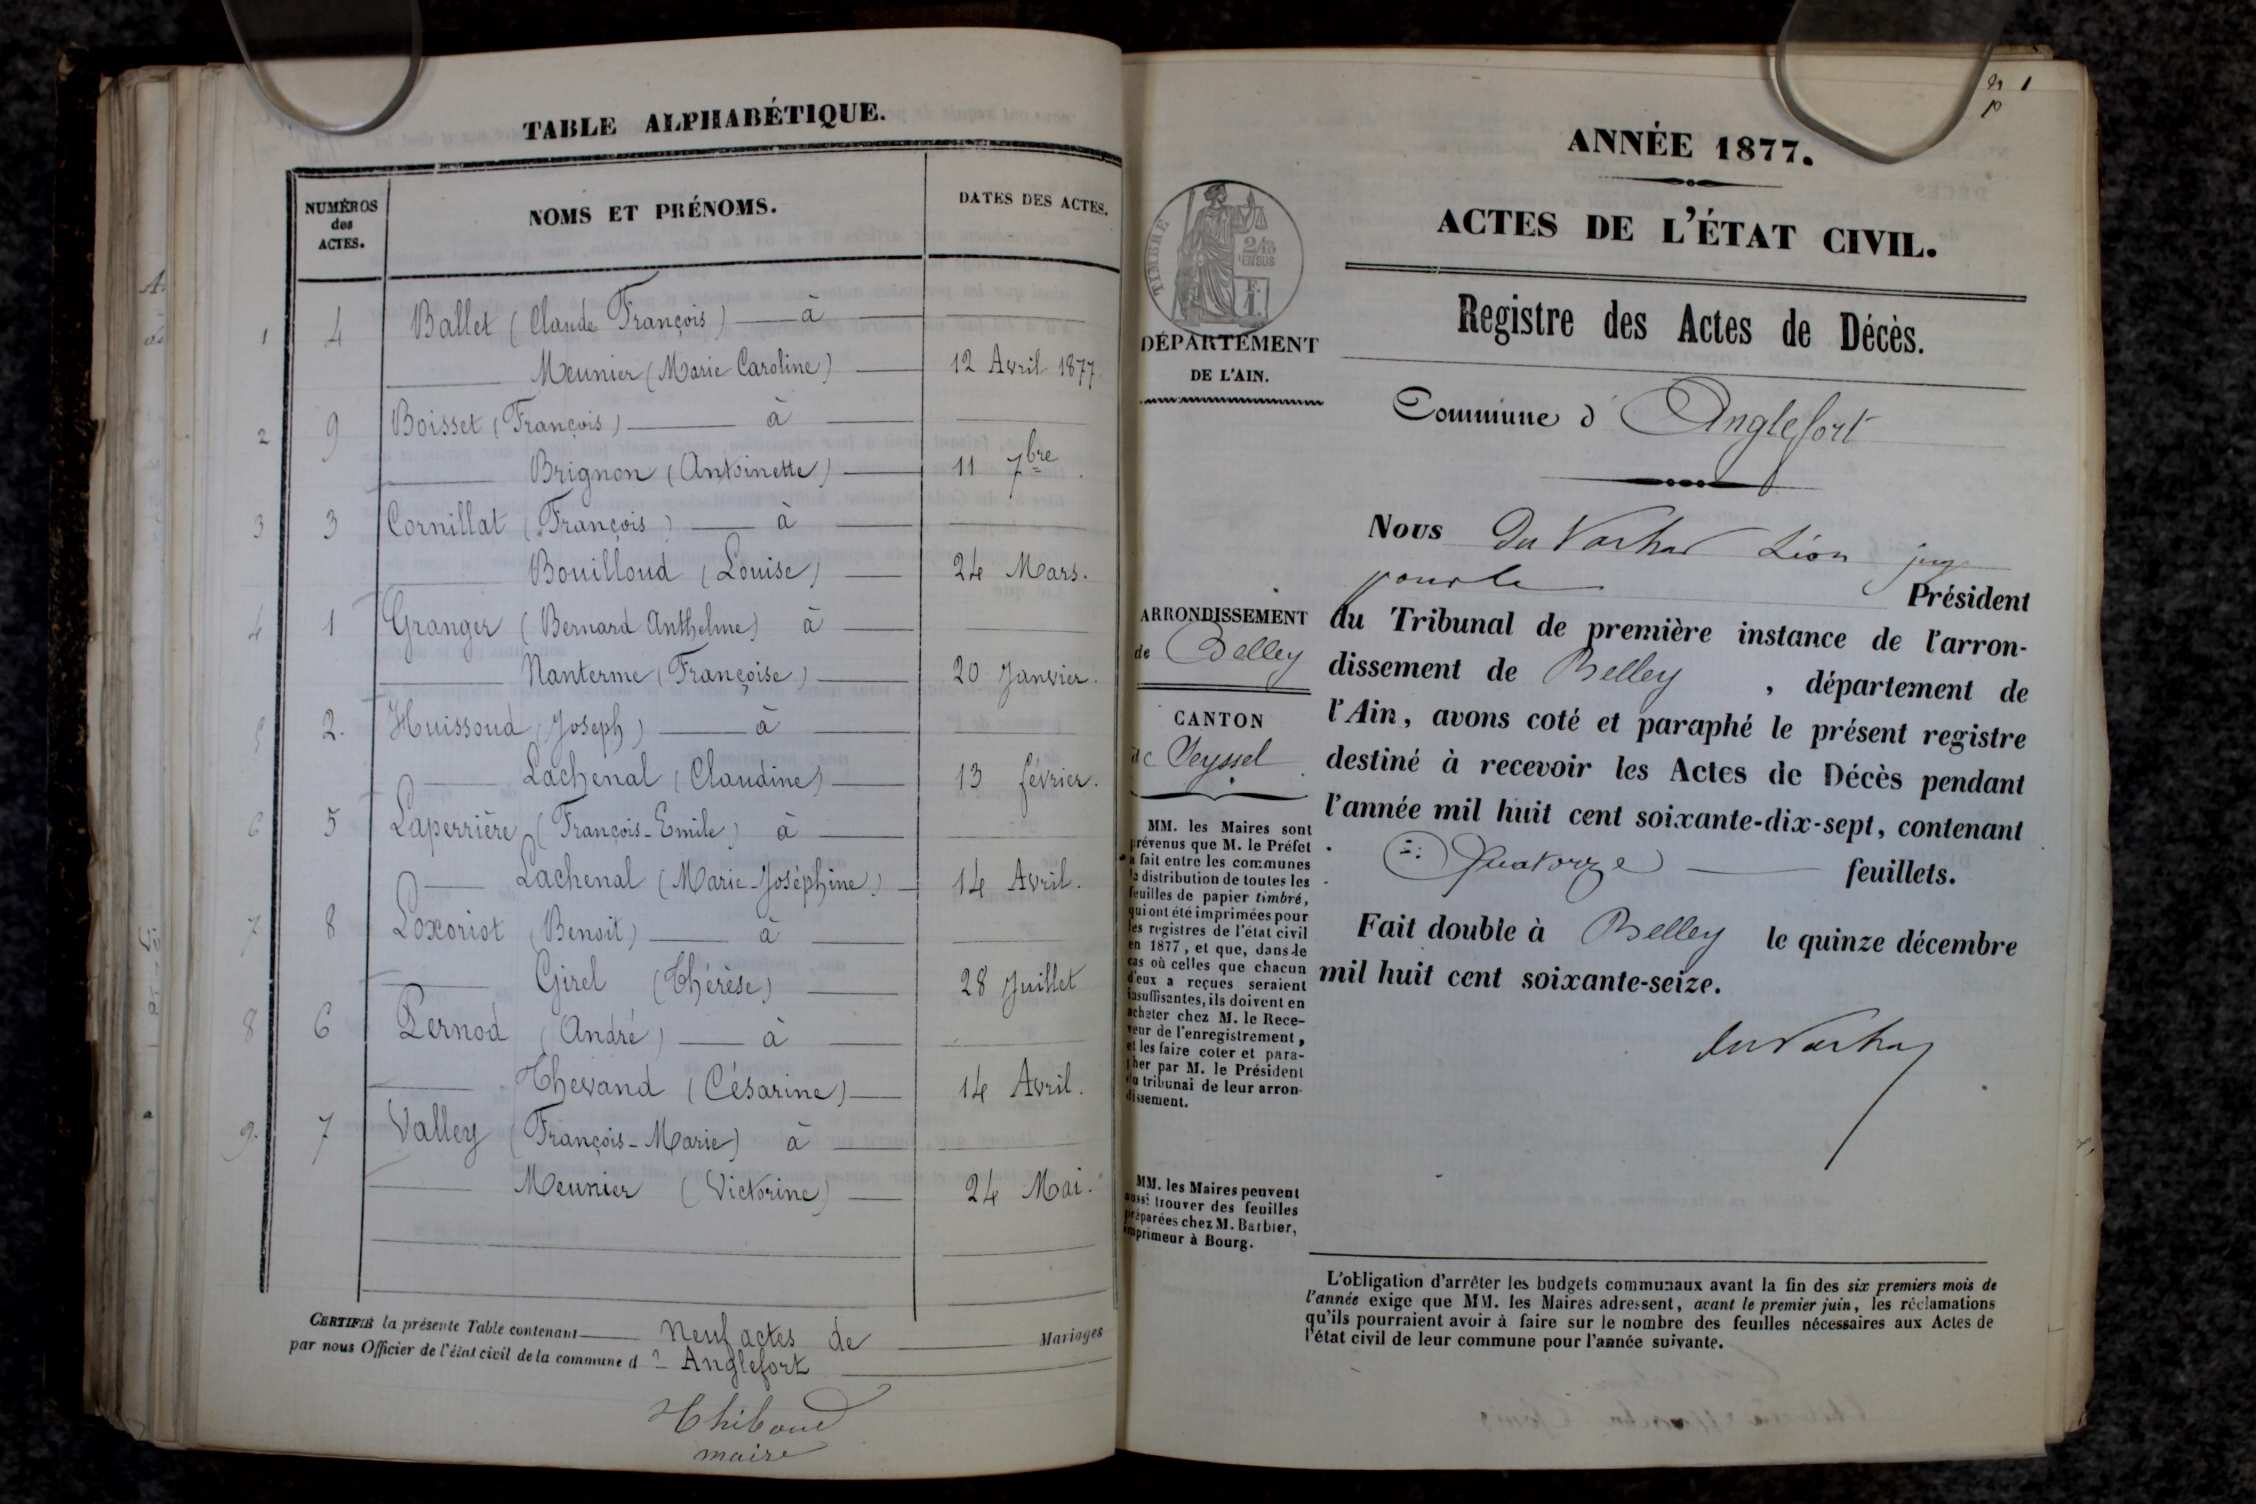 TABLE ALPHABÉTIQUE.
NUMÉROS
des
ACTES.
NOMS ET PRÉNOMS.
DATES DES ACTES.
1 4 Ballet (Claude François) à
Meunier (Marie Caroline) 12 Avril 1877
2 9 Boisset (François) à
Brignon (Antoinette) 11 7bre.
3 3 Cornillat (François) à
Bouilloud (Louise) 24 Mars.
4 1 Granger (Bernard Anthelme) à
Nanterme (Françoise) 20 Janvier.
5 2. Huissoud (Joseph) à
Lachenal (Claudine) 13 février.
6 5 Laperrière (François-Emile) à
Lachenal (Marie-Joséphine) 14 Avril.
7 8 Loxoriot (Benoit) à
Girel (Thérèse) 28 Juillet
8 6 Pernod (André) à
Thevand (Césarine) 14 Avril.
9. 7 Valley (François-Marie) à
Meunier (Victorine) 24 Mai.
CERTIFIÉ la présente Table contenant Neuf actes de Mariages
par nous Officier de l'état civil de la commune d' Anglefort
Thiboud
maire
1
ANNÉE 1877.
ACTES DE L'ÉTAT CIVIL.
TIMBRE
Registre des Actes de Décès.
DÉPARTEMENT
DE L'AIN.
Commune d' Anglefort
Nous Léon juge
pour le Président
ARRONDISSEMENT
de Belley
du Tribunal de première instance de l'arron-
dissement de Belley, département de
l'Ain, avons coté et paraphé le présent registre
destiné à recevoir les Actes de Décès pendant
l'année mil huit cent soixante-dix-sept, contenant
Quatorze feuillets.
CANTON
de Seyssel
MM. les Maires sont
prévenus que M. le Préfet
a fait entre les communes
la distribution de toutes les
feuilles de papier timbré,
qui ont été imprimées pour
les registres de l'état civil
en 1877, et que, dans le
cas où celles que chacun
d'eux a reçues seraient
insuffisantes, ils doivent en
acheter chez M. le Rece-
veur de l'enregistrement,
et les faire coter et para-
pher par M. le Président
du tribunal de leur arron-
dissement.
Fait double à Belley le quinze décembre
mil huit cent soixante-seize.
MM. les Maires peuvent
aussi trouver des feuilles
préparées chez M. Barbier,
imprimeur à Bourg.
L'obligation d'arrêter les budgets communaux avant la fin des six premiers mois de
l'année exige que MM. les Maires adressent, avant le premier juin, les réclamations
qu'ils pourraient avoir à faire sur le nombre des feuilles nécessaires aux Actes de
l'état civil de leur commune pour l'année suivante.